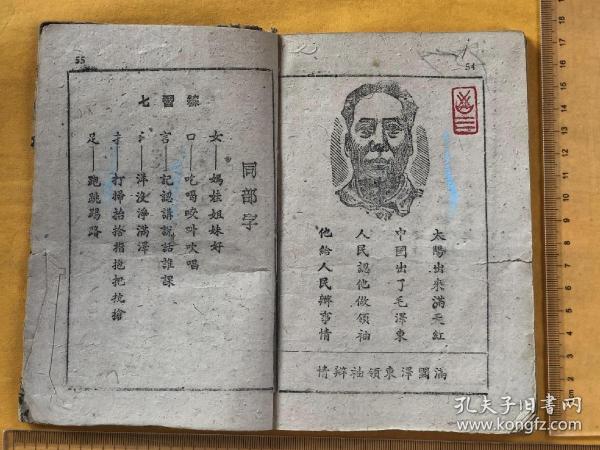 54
太陽出來滿天紅
中國出了毛澤東
人民認他做領袖
他給人民辦事情
滿國澤東領袖辦情
55
練習七
同部字
女——媽娃姐妹好
口——吃喝咬叫吹唱
言——記認講說話誰課
氵——洋沒淨滿澤
扌——打掃抬拾指拖把抗搶
足——跑跳踢路
孔夫子旧書网
www.kongfz.com